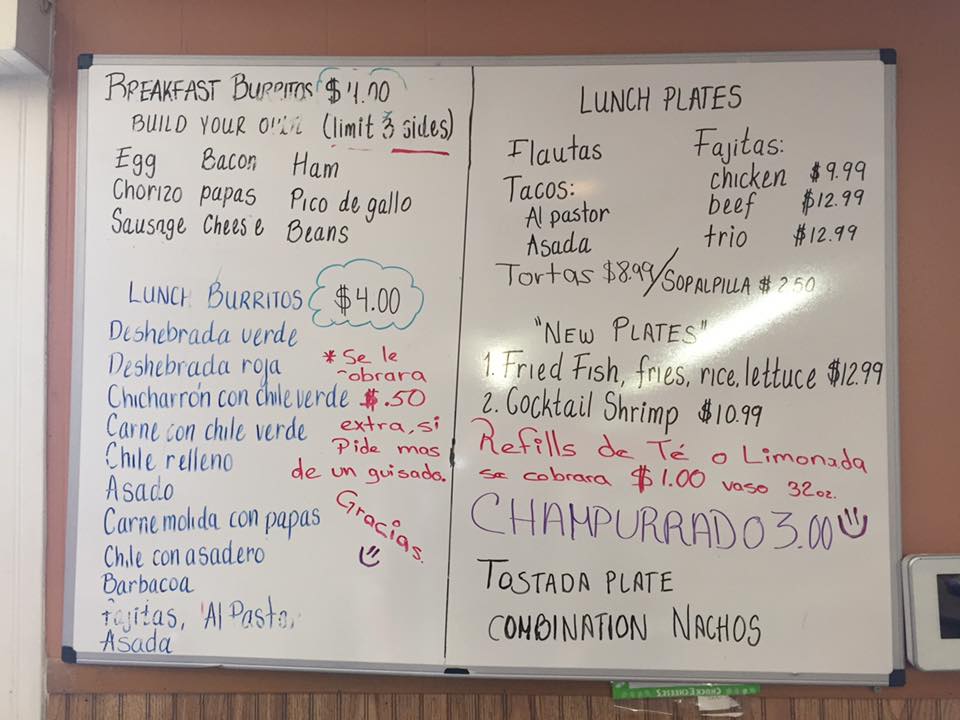 BREAKFAST BURRITOS $4.00
BUILD YOUR OWN (limit 3 sides)
Egg Bacon Ham
Chorizo papas Pico de gallo
Sausage Cheese Beans
LUNCH BURRITOS $4.00
Deshebrada verde
Deshebrada roja
Chicharrón con chile verde
Carne con chile verde
Chile relleno
Asado
Carne molida con papas
Chile con asadero
Barbacoa
fajitas, Al Pastor
Asada
* Se le
cobrara
$.50
extra, si
Pide mas
de un guisado.
Gracias.
LUNCH PLATES
Flautas
Tacos:
Al pastor
Asada
Fajitas:
chicken $9.99
beef $12.99
trio $12.99
Tortas $8.99/SOPALPILLA $2.50
"NEW PLATES"
1. Fried Fish, fries, rice, lettuce $12.99
2. Cocktail Shrimp $10.99
Refills de Té o Limonada
se cobrara $1.00 vaso 32oz.
CHAMPURRADO 3.00
TOSTADA PLATE
COMBINATION NACHOS